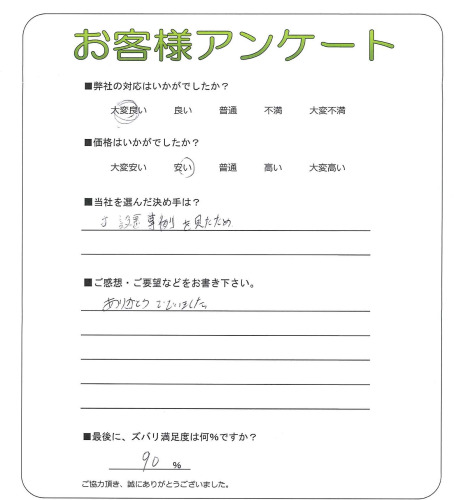 お客様アンケート
■弊社の対応はいかがでしたか？
大変良い 良い 普通 不満 大変不満
■価格はいかがでしたか？
大変安い 安い 普通 高い 大変高い
■当社を選んだ決め手は？
事例を見たため
■ご感想・ご要望などをお書き下さい。
ありがとうございました。
■最後に、ズバリ満足度は何％ですか？
90 ％
ご協力頂き、誠にありがとうございました。